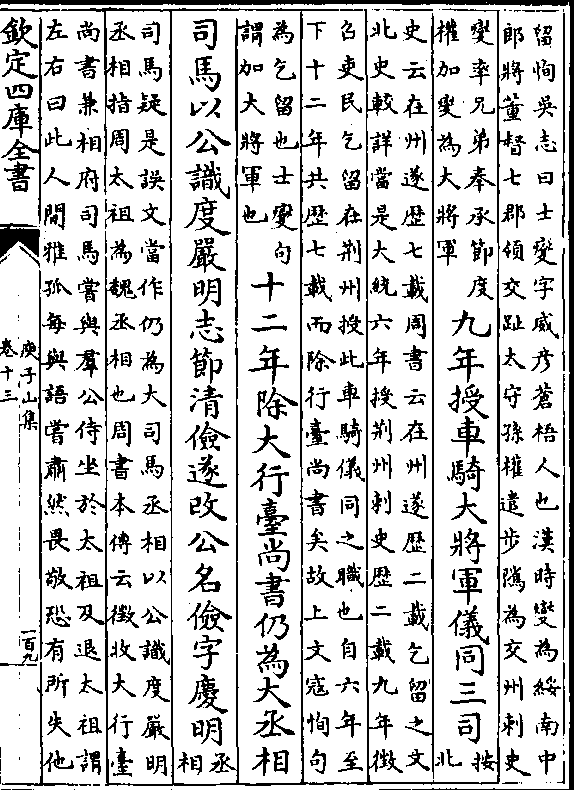 留恂吳志曰士變字威彦蒼梧人也漢時變為綏南中
郎將董督七郡領交趾太守孫權遣步隲為交州刺史
變率兄弟奉承節度
權加變為大將軍
九年授車騎大將軍儀同三司
按
北
史云在州遂歷七載周書云在州遂歷二載乞留之文
北史較詳當是大統六年授荆州刺史歷二載九年徵
召吏民乞留在荆州授此車騎儀同之職也自六年至
下十二年共歷七載而除行臺尚書矣故上文寇恂句
為乞留也士變句
謂加大將軍也
十二年除大行臺尚書仍為大丞相
司馬以公識度嚴明志節清儉遂改公名儉字慶明
丞
相
司馬疑是誤文當作仍為大司馬丞相以公識度嚴明
丞相指周太祖為魏丞相也周書本傳云徵收大行臺
尚書兼相府司馬嘗與羣公侍坐於太祖及退太祖謂
左右曰此人閒雅孤每與語嘗肅然畏敬恐有所失他
欽定四庫全書
庾子山集
卷十三
一百九